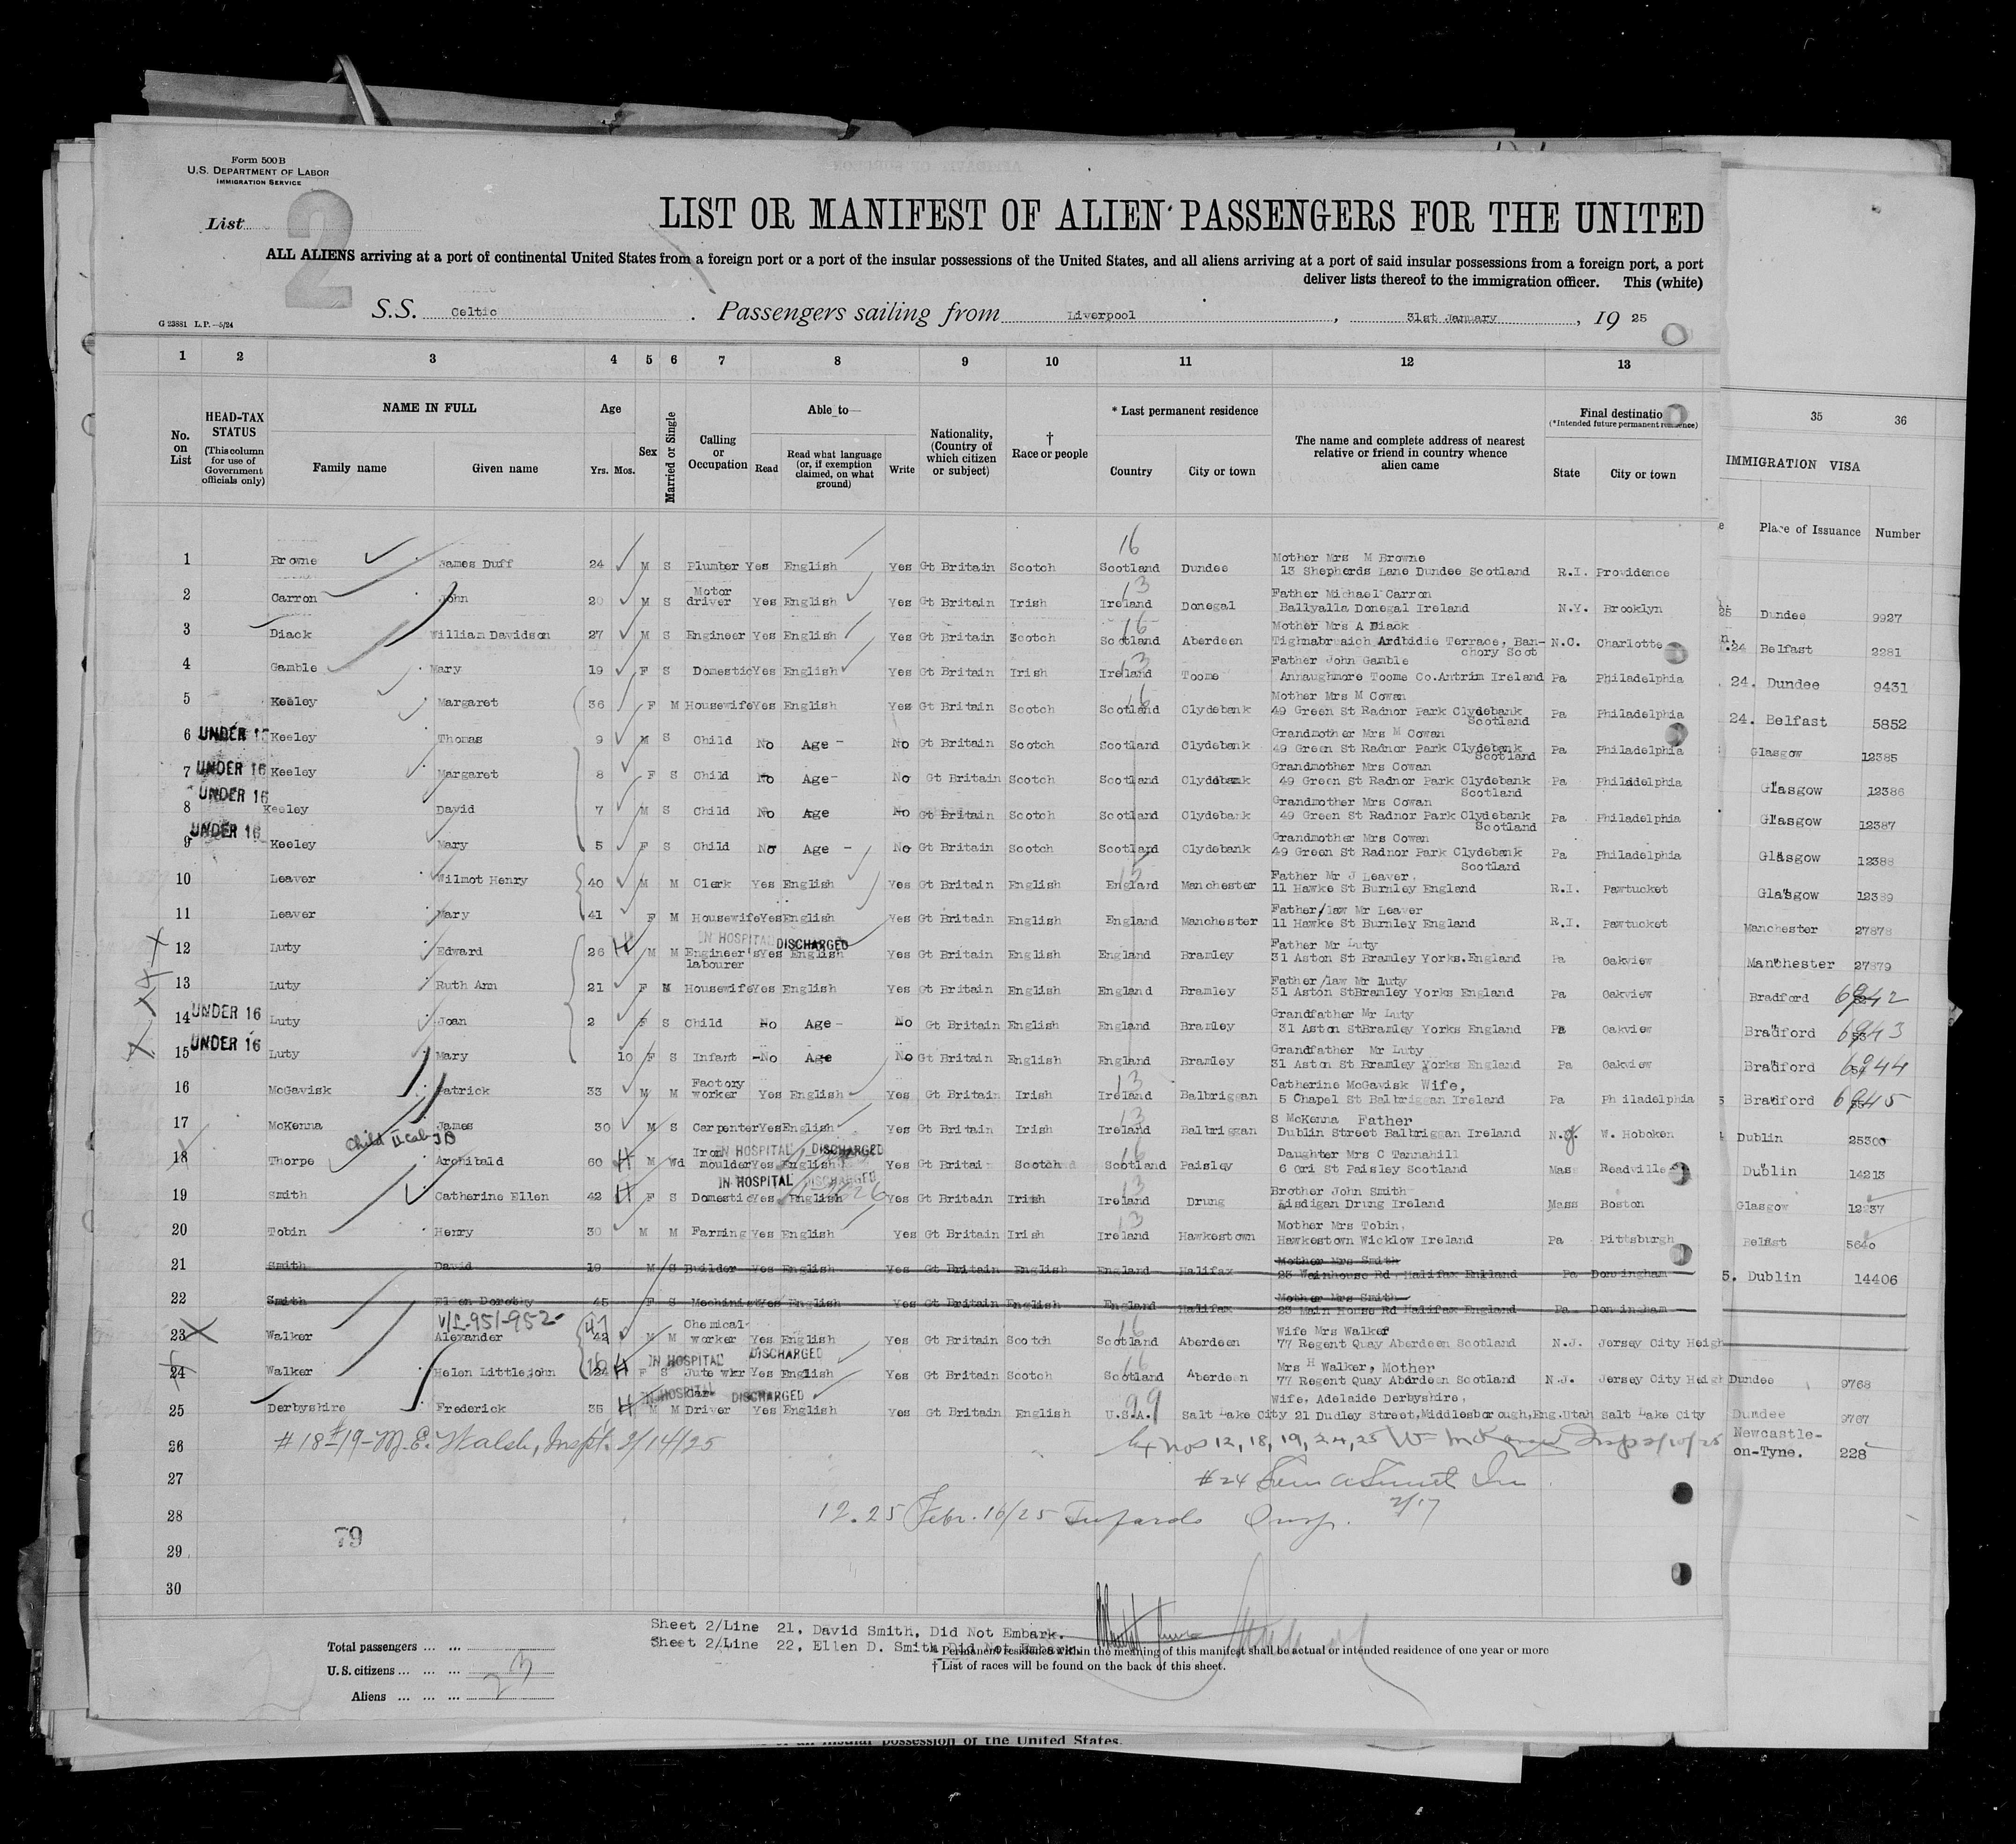 Form 500 B
U.S. DEPARTMENT OF LABOR
IMMIGRATION SERVICE
List 2
LIST OR MANIFEST OF ALIEN PASSENGERS FOR THE UNITED
ALL ALIENS arriving at a port of continental United States from a foreign port or a port of the insular possessions of the United States, and all aliens arriving at a port of said insular possessions from a foreign port, a port
deliver lists thereof to the immigration officer. This (white)
S.S. Celtic . Passengers sailing from Liverpool , 31st January , 19 25
G 23881 L.P.—5/24
1 2 3 4 5 6 7 8 9 10 11 12 13 35 36
No. on List
HEAD-TAX STATUS (This column for use of Government officials only)
NAME IN FULL Family name Given name
Age Yrs. Mos.
Sex
Married or Single
Calling or Occupation
Able to— Read Read what language (or, if exemption claimed, on what ground) Write
Nationality, (Country of which citizen or subject)
† Race or people
* Last permanent residence Country City or town
The name and complete address of nearest relative or friend in country whence alien came
Final destinatio (*Intended future permanent residence) State City or town
IMMIGRATION VISA
Place of Issuance Number
1 Browne James Duff 24 M S Plumber Yes English Yes Gt Britain Scotch 16 Scotland Dundee Mother Mrs M Browne 13 Shepherds Lane Dundee Scotland R.I. Providence
2 Carron John 20 M S Motor driver Yes English Yes Gt Britain Irish 13 Ireland Donegal Father Michael Carron Ballyalla Donegal Ireland N.Y. Brooklyn
25 Dundee 9927
3 Diack William Davidson 27 M S Engineer Yes English Yes Gt Britain Scotch 16 Scotland Aberdeen Mother Mrs A Diack Tighnabruaich Ardbidie Terrace, Ban-chory Scot N.C. Charlotte
24 Belfast 2281
4 Gamble Mary 19 F S Domestic Yes English Yes Gt Britain Irish 13 Ireland Toome Father John Gamble Annaughmore Toome Co.Antrim Ireland Pa Philadelphia
24. Dundee 9431
5 Keeley Margaret 36 F M Housewife Yes English Yes Gt Britain Scotch 16 Scotland Clydebank Mother Mrs M Cowan 49 Green St Radnor Park Clydebank Scotland Pa Philadelphia
24. Belfast 5852
6 UNDER 16 Keeley Thomas 9 M S Child No Age - No Gt Britain Scotch Scotland Clydebank Grandmother Mrs M Cowan 49 Green St Radnor Park Clydebank Scotland Pa Philadelphia
Glasgow 12385
7 UNDER 16 Keeley Margaret 8 F S Child No Age- No Gt Britain Scotch Scotland Clydebank Grandmother Mrs Cowan 49 Green St Radnor Park Clydebank Scotland Pa Philadelphia
Glasgow 12386
8 UNDER 16 Keeley David 7 M S Child No Age No Gt Britain Scotch Scotland Clydebank Grandmother Mrs Cowan 49 Green St Radnor Park Clydebank Scotland Pa Philadelphia
Glasgow 12387
9 UNDER 16 Keeley Mary 5 F S Child No Age - No Gt Britain Scotch Scotland Clydebank Grandmother Mrs Cowan 49 Green St Radnor Park Clydebank Scotland Pa Philadelphia
Glasgow 12388
10 Leaver Wilmot Henry 40 M M Clerk Yes English Yes Gt Britain English England Manchester Father Mr J Leaver, 11 Hawke St Burnley England R.I. Pawtucket
Glasgow 12389
11 Leaver Mary 41 F M Housewife Yes English Yes Gt Britain English England Manchester Father/law Mr Leaver 11 Hawke St Burnley England R.I. Pawtucket
Manchester 27878
12 Luty Edward 26 H M M Engineer's labourer IN HOSPITAL DISCHARGED Yes English Yes Gt Britain English England Bramley Father Mr Luty 31 Aston St Bramley Yorks.England Pa Oakview
Manchester 27879
13 Luty Ruth Ann 21 F M Housewife Yes English Yes Gt Britain English England Bramley Father/law Mr Luty 31 Aston StBramley Yorks England Pa Oakview
Bradford 6942
14 UNDER 16 Luty Joan 2 F S Child No Age - No Gt Britain English England Bramley Grandfather Mr Luty 31 Aston StBramley Yorks England Pa Oakview
Bradford 6943
15 UNDER 16 Luty Mary 10 F S Infant -No Age No Gt Britain English England Bramley Grandfather Mr Luty 31 Aston St Bramley Yorks England Pa Oakview
Bradford 6944
16 McGavisk Patrick 33 M M Factory worker Yes English Yes Gt Britain Irish 13 Ireland Balbriggan Catherine McGavisk Wife, 5 Chapel St Balbriggan Ireland Pa Philadelphia
Bradford 6945
17 McKenna James 30 M S Carpenter Yes English Yes Gt Britain Irish 13 Ireland Balbriggan S McKenna Father Dublin Street Balbriggan Ireland N.J. W. Hoboken
Dublin 25300
18 Thorpe Archibald 60 H M Wd Iron moulder IN HOSPITAL DISCHARGED Yes English Yes Gt Britai Scotch 16 Scotland Paisley Daughter Mrs C Tannahill 6 Ori St Paisley Scotland Mass Readville
Dublin 14213
19 Smith Catherine Ellen 42 H F S Domestic IN HOSPITAL DISCHARGED Yes English Yes Gt Britain Irish 13 Ireland Drung Brother John Smith Lisdigan Drung Ireland Mass Boston
Glasgow 12237
20 Tobin Henry 30 M M Farming Yes English Yes Gt Britain Irish 13 Ireland Hawkestown Mother Mrs Tobin, Hawkestown Wicklow Ireland Pa Pittsburgh
Belfast 5640
21 Smith David 19 M S Builder Yes English Yes Gt Britain English England Halifax Mother Mrs Smith 25 Wainhouse Rd Halifax England Pa Dowingham
5. Dublin 14406
22 Smith Ellen Dorothy 45 F S Mechinist Yes English Yes Gt Britain English England Halifax Mother Mrs Smith 23 Main House Rd Halifax England Pa Dowingham
V/L-951-952
23 Walker Alexander 47 42 M M Chemical worker Yes English Yes Gt Britain Scotch 16 Scotland Aberdeen Wife Mrs Walker 77 Regent Quay Aberdeen Scotland N.J. Jersey City Heigh
24 Walker Helen Littlejohn 24 H F S Jute wkr IN HOSPITAL DISCHARGED Yes English Yes Gt Britain Scotch 16 Scotland Aberdeen Mrs H Walker, Mother 77 Regent Quay Aberdeen Scotland N.J. Jersey City Heigh
Dundee 9768
25 Derbyshire Frederick 35 H M M Car Driver IN HOSPITAL DISCHARGED Yes English Yes Gt Britain English 99 U.S.A. Salt Lake City Wife, Adelaide Derbyshire, 21 Dudley Street,Middlesborough,Eng. Utah Salt Lake City
Dundee 9767
26 #18+19-M.E. Walsh, Inspt. 2/14/25 Nos 12, 18, 19, 24, 25 Insp 2/10/25
Newcastle-on-Tyne. 228
27 #24
28 12.25 Febr. 16/25 Insp. 2/17
29
79
30
Sheet 2/Line 21, David Smith, Did Not Embark.
Sheet 2/Line 22, Ellen D. Smith Did Not Embark
Total passengers ... ...
U.S. citizens ... ... ...
Aliens ... ... ... 23
* Permanent residence within the meaning of this manifest shall be actual or intended residence of one year or more
† List of races will be found on the back of this sheet.
an insular possession of the United States.